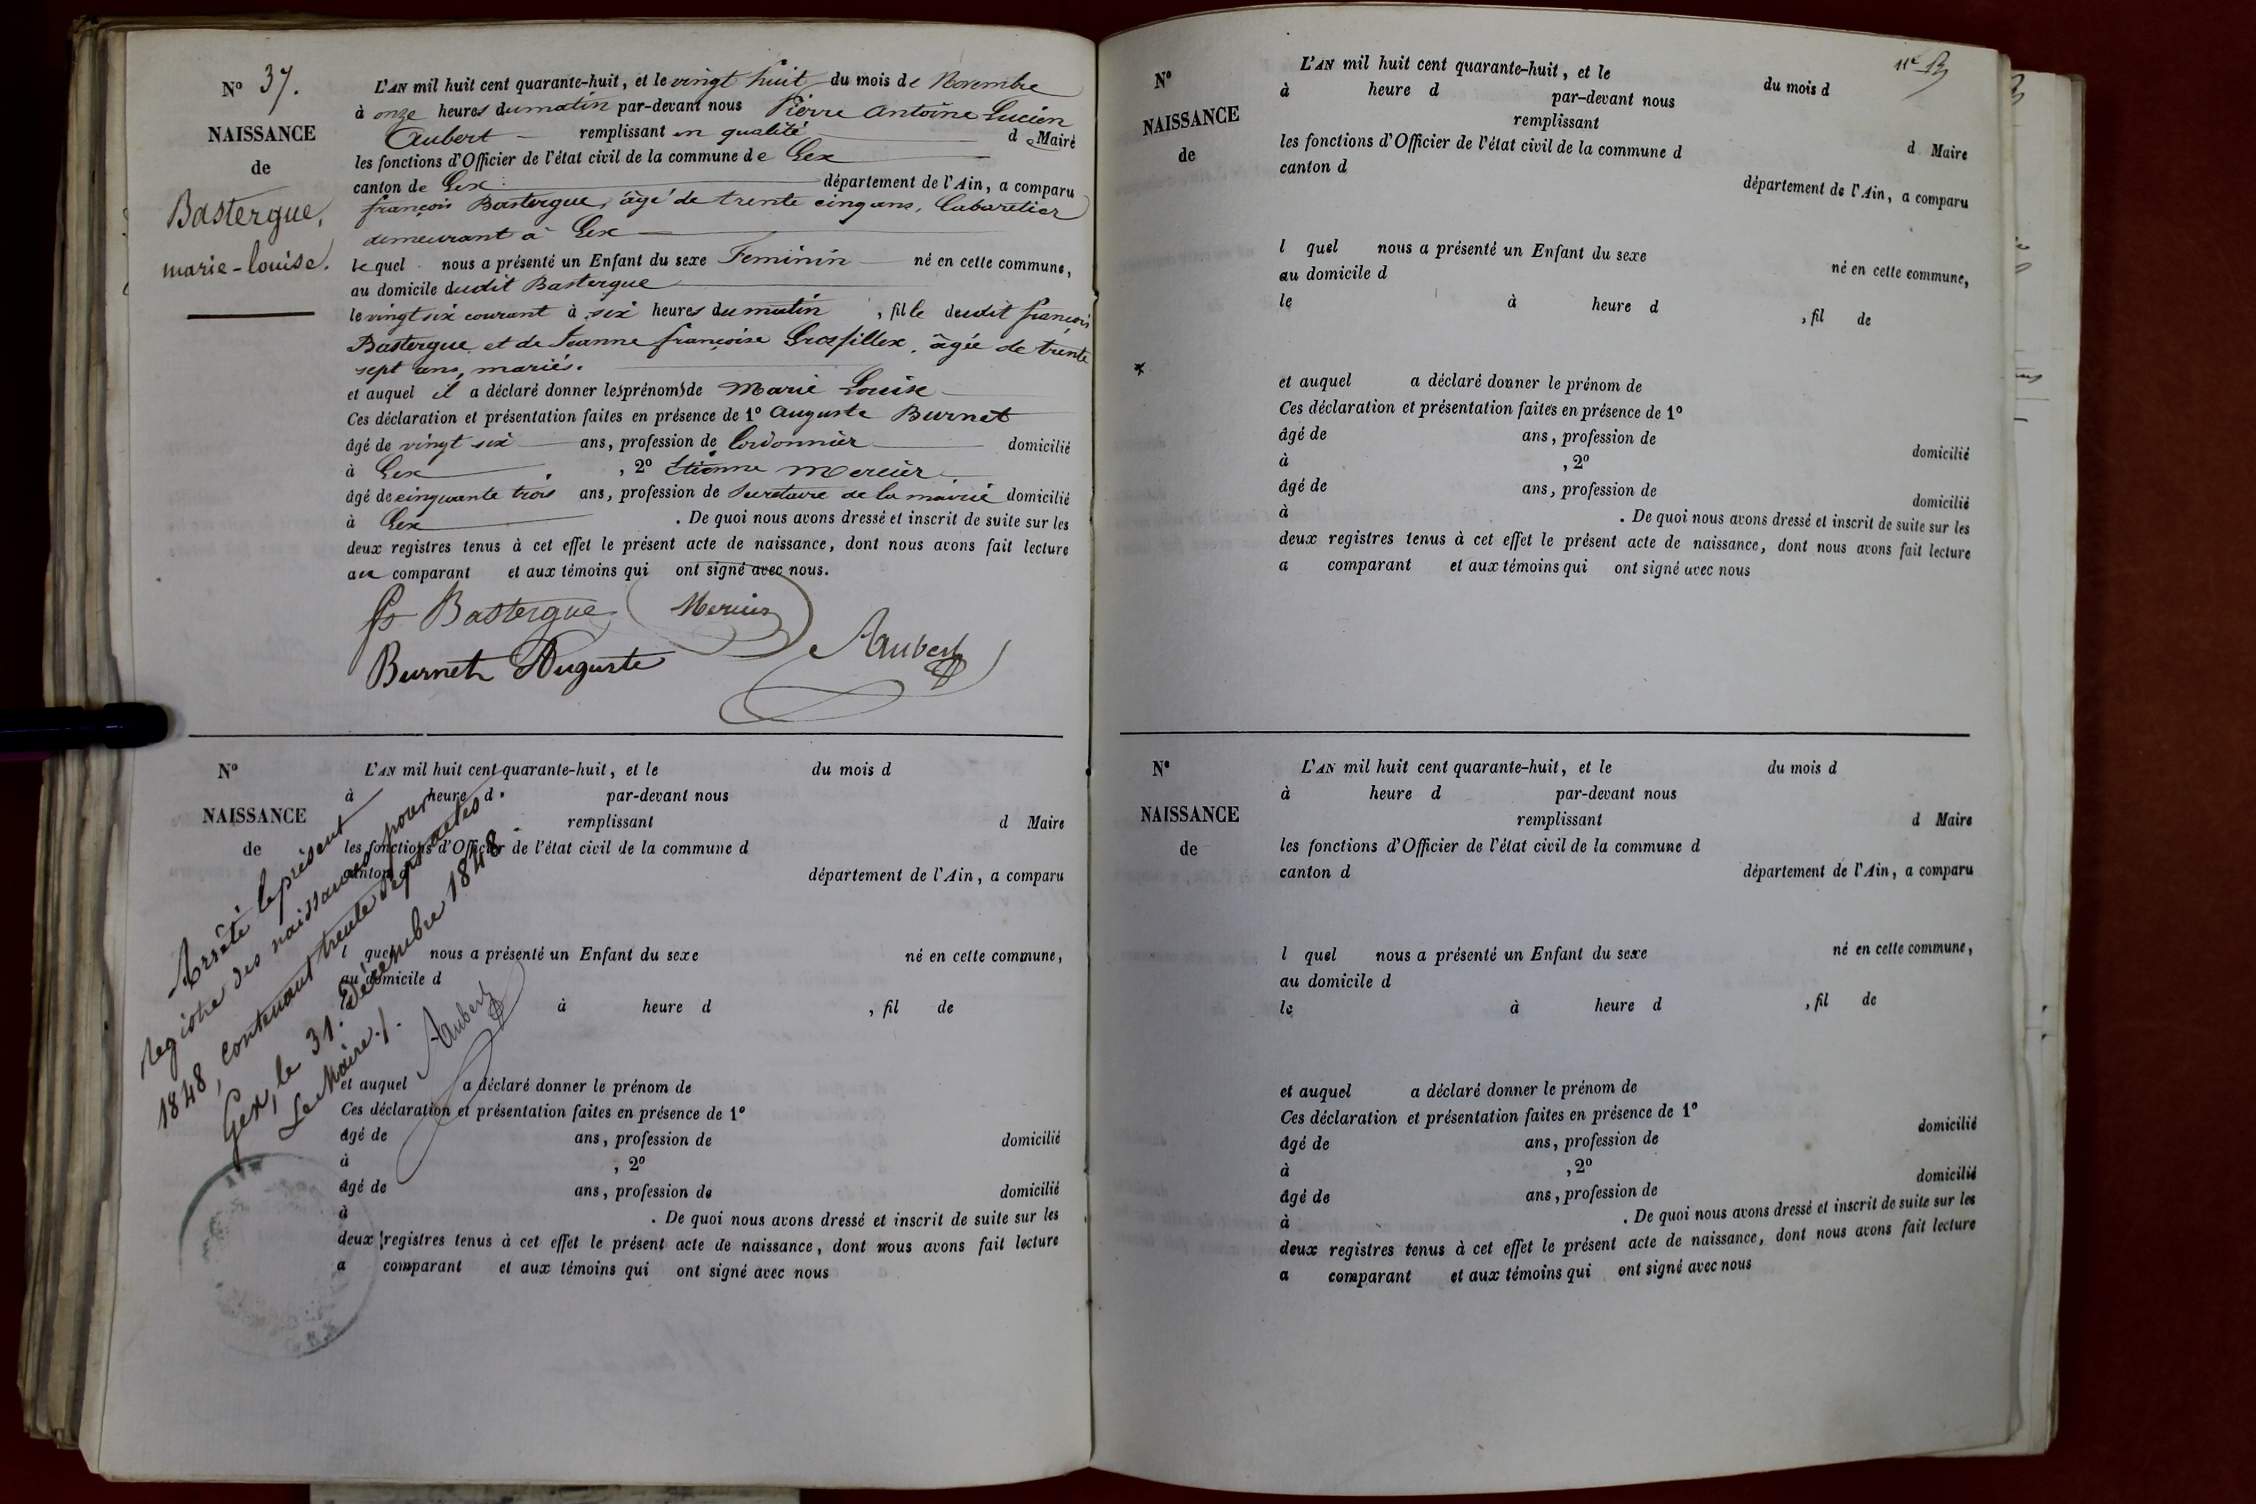 N° 37.
NAISSANCE
de
Bastergue,
marie-louise.
L'AN mil huit cent quarante-huit, et le vingt huit du mois de Novembre
à onze heures du matin par-devant nous Pierre Antoine Lucien
Aubert remplissant en qualité d e Maire
les fonctions d'Officier de l'état civil de la commune de Gex
canton de Gex département de l'Ain, a comparu
françois Bastergue, âgé de trente cinq ans, Cabaretier
demeurant à Gex
lequel nous a présenté un Enfant du sexe Feminin né en cette commune,
au domicile dudit Bastergue
le vingt six courant à six heures du matin, fille dudit françois
Bastergue et de Jeanne françoise Grosfillex, âgée de trente
sept ans, mariés.
et auquel il a déclaré donner les prénoms de Marie Louise
Ces déclaration et présentation faites en présence de 1° Auguste Burnet
âgé de vingt six ans, profession de Cordonnier domicilié
à Gex, 2° Etienne Mercier
âgé de cinquante trois ans, profession de Secretaire de la mairie domicilié
à Gex. De quoi nous avons dressé et inscrit de suite sur les
deux registres tenus à cet effet le présent acte de naissance, dont nous avons fait lecture
au comparant et aux témoins qui ont signé avec nous.
Bastergue Mercier
Aubert
Burnet Auguste
N°
NAISSANCE
de
L'AN mil huit cent quarante-huit, et le du mois d
à heure d par-devant nous
remplissant d Maire
les fonctions d'Officier de l'état civil de la commune d
canton d département de l'Ain, a comparu
l quel nous a présenté un Enfant du sexe né en cette commune,
au domicile d
à heure d , fil de
et auquel a déclaré donner le prénom de
Ces déclaration et présentation faites en présence de 1°
âgé de ans, profession de domicilié
à , 2°
âgé de ans, profession de domicilié
à . De quoi nous avons dressé et inscrit de suite sur les
deux registres tenus à cet effet le présent acte de naissance, dont nous avons fait lecture
a comparant et aux témoins qui ont signé avec nous
Arrêté le présent
registre des naissances pour
1848, contenant trente sept actes
Gex, le 31. Décembre 1848.
Le Maire./.
Aubert
11e
N°
NAISSANCE
de
L'AN mil huit cent quarante-huit, et le du mois d
à heure d par-devant nous
remplissant d Maire
les fonctions d'Officier de l'état civil de la commune d
canton d département de l'Ain, a comparu
l quel nous a présenté un Enfant du sexe né en cette commune,
au domicile d
le à heure d , fil de
et auquel a déclaré donner le prénom de
Ces déclaration et présentation faites en présence de 1°
âgé de ans, profession de domicilié
à , 2°
âgé de ans, profession de domicilié
à . De quoi nous avons dressé et inscrit de suite sur les
deux registres tenus à cet effet le présent acte de naissance, dont nous avons fait lecture
a comparant et aux témoins qui ont signé avec nous
N°
NAISSANCE
de
L'AN mil huit cent quarante-huit, et le du mois d
à heure d par-devant nous
remplissant d Maire
les fonctions d'Officier de l'état civil de la commune d
canton d département de l'Ain, a comparu
l quel nous a présenté un Enfant du sexe né en cette commune,
au domicile d
le à heure d , fil de
et auquel a déclaré donner le prénom de
Ces déclaration et présentation faites en présence de 1°
âgé de ans, profession de domicilié
à , 2°
âgé de ans, profession de domicilié
à . De quoi nous avons dressé et inscrit de suite sur les
deux registres tenus à cet effet le présent acte de naissance, dont nous avons fait lecture
a comparant et aux témoins qui ont signé avec nous